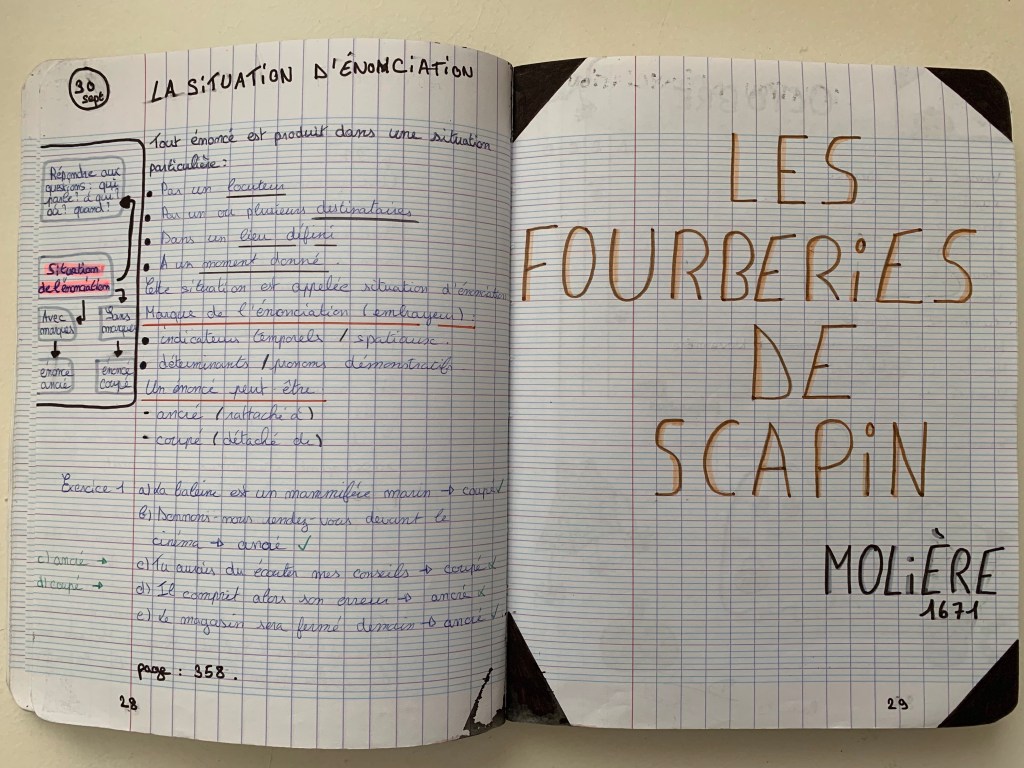 30
sept
LA SITUATION D'ÉNONCIATION
Répondre aux
questions : qui
parle ? à qui ?
où ? quand ?
Situation
de l'énonciation
Avec
marques
Sans
marques
énoncé
ancré
énoncé
coupé
Tout énoncé est produit dans une situation
particulière :
• Par un locuteur
• Par un ou plusieurs destinataires
• Dans un lieu défini
• A un moment donné.
Cette situation est appelée situation d'énonciation
Marque de l'énonciation (embrayeur) :
• indicateurs temporels / spatiaux.
• déterminants / pronoms démonstratifs
Un énoncé peut être
- ancré (rattaché à)
- coupé (détaché de)
Exercice 1 a) La baleine est un mammifère marin → coupé ✓
b) Donnons-nous rendez-vous devant le
cinéma → ancré ✓
c) Tu aurais du écouter mes conseils → coupé x
d) Il comprit alors son erreur → ancré x
e) Le magasin sera fermé demain → ancré ✓
c) ancré →
d) coupé →
page : 358.
28
LES
FOURBERIES
DE
SCAPIN
MOLIÈRE
1671
29